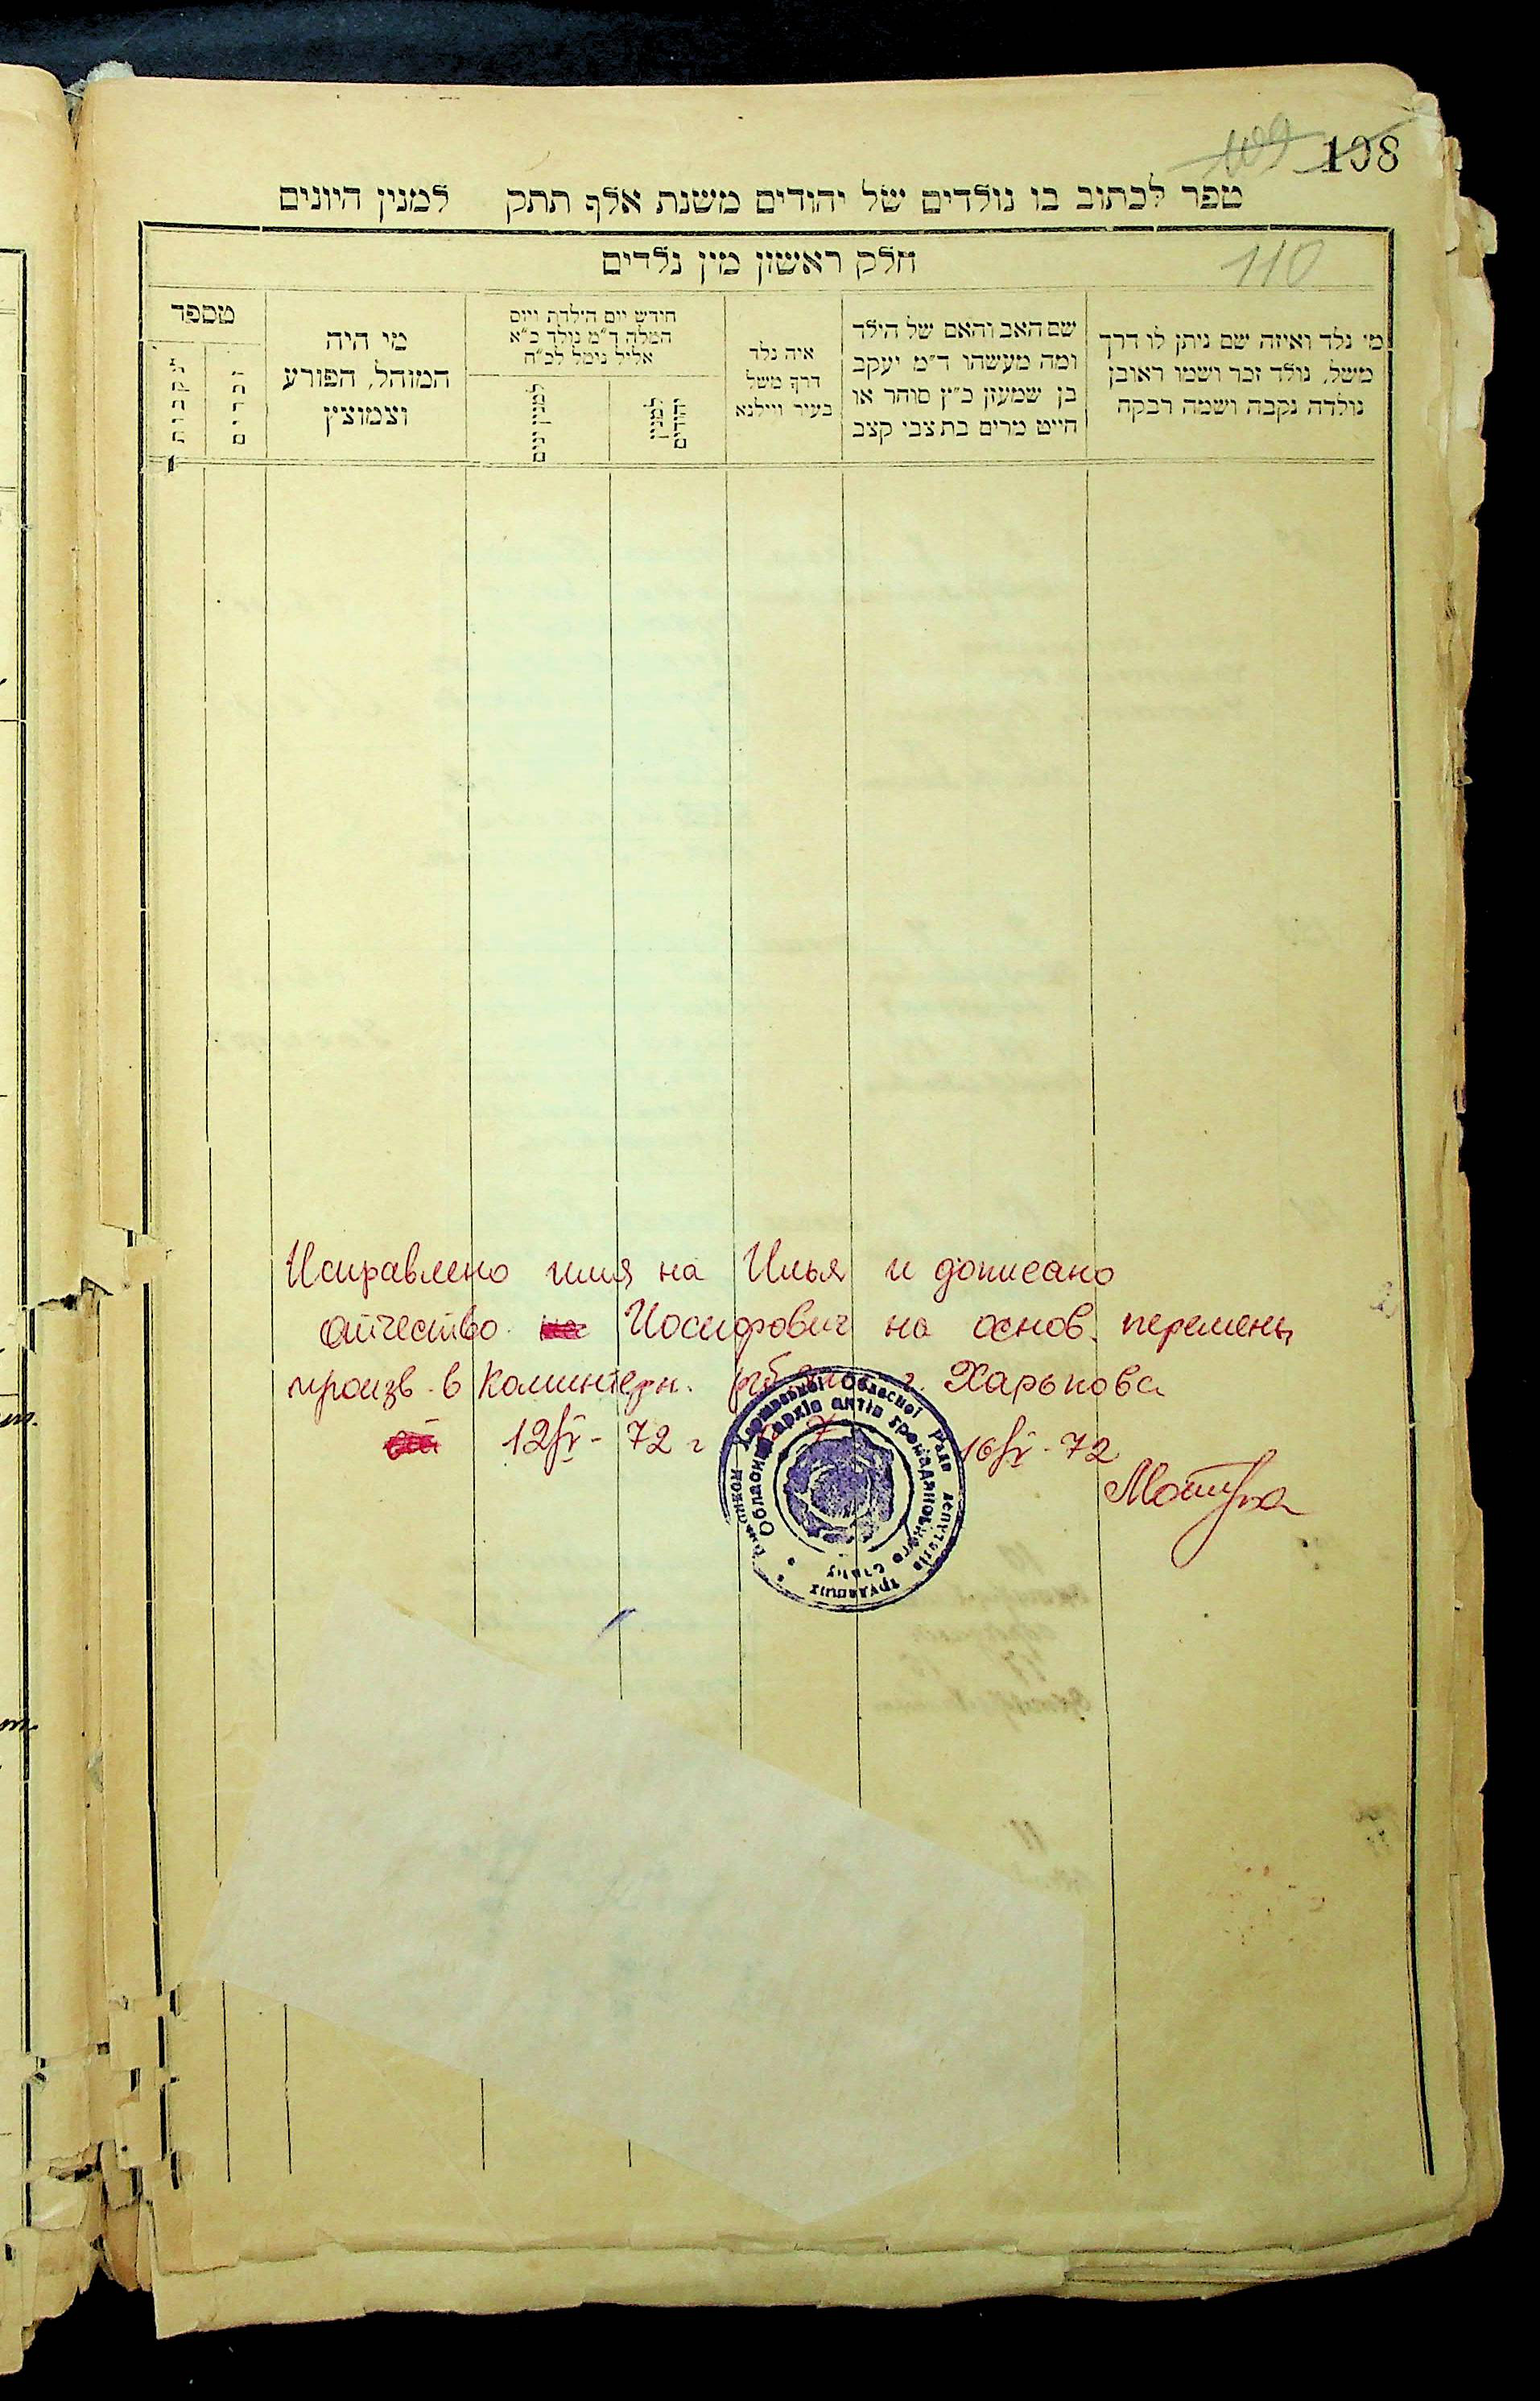 109 108
ספר לכתוב בו נולדים של יהודים משנת אלף תתק למנין היונים
110
חלק ראשון מין נלדים
מי נלד ואיזה שם ניתן לו דרך
משל, נולד זכר ושמו ראובן
נולדה נקבה ושמה רבקה
שם האב והאם של הילד
ומה מעשהו ד״מ יעקב
בן שמעון כ״ץ סוחר או
חייט מרים בת צבי קצב
איה נלד
דרך משל
בעיר ווילנא
חידש יום הילדת ויום
המלה ד״מ נולד כ״א
אליל נימל לכ״ח
למנין יהודים
למנין ינים
מי היה
המוהל, הפורע
וצמוצץ
מספר
זכרים
נקבות
Исправлено имя на Илья и дописано
отчество на Иосифович на основ. перемены
произв. в Коминтерн. г. Харькова
12/IV - 72 г 16/IV - 72
Харківської Обласної Ради депутатів трудящих
Обласний архів актів громадянського стану